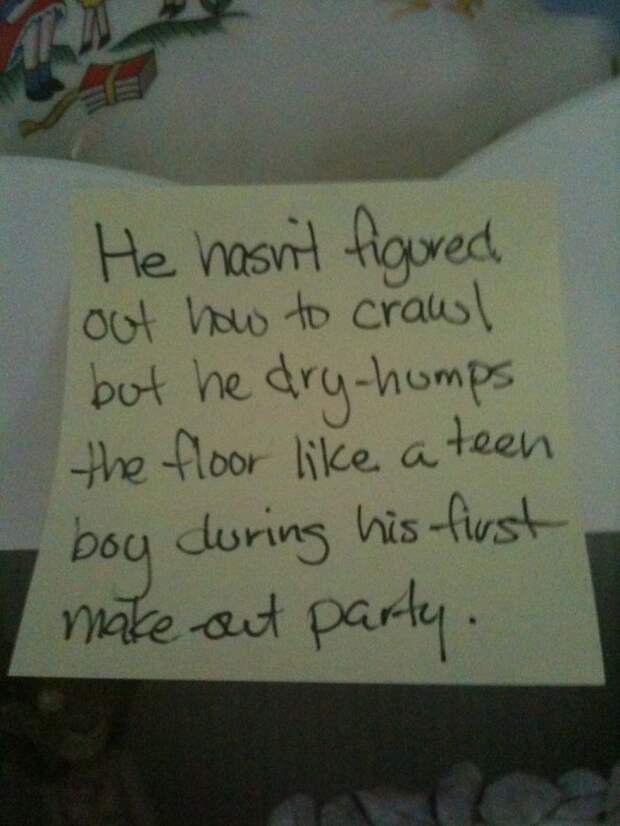 He hasn't figured
out how to crawl
but he dry-humps
the floor like a teen
boy during his first
make-out party.